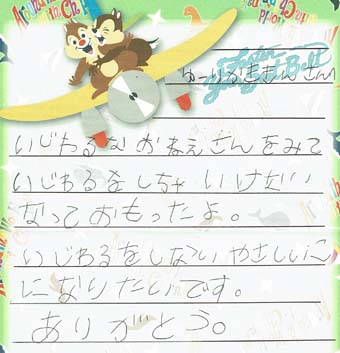 ゆーりかききんさんへ
いじわるな おねえさんをみて
いじわるをしちゃ いけない
なっておもったよ。
いじわるをしない やさしいこ
になりたいです。
ありがとう。